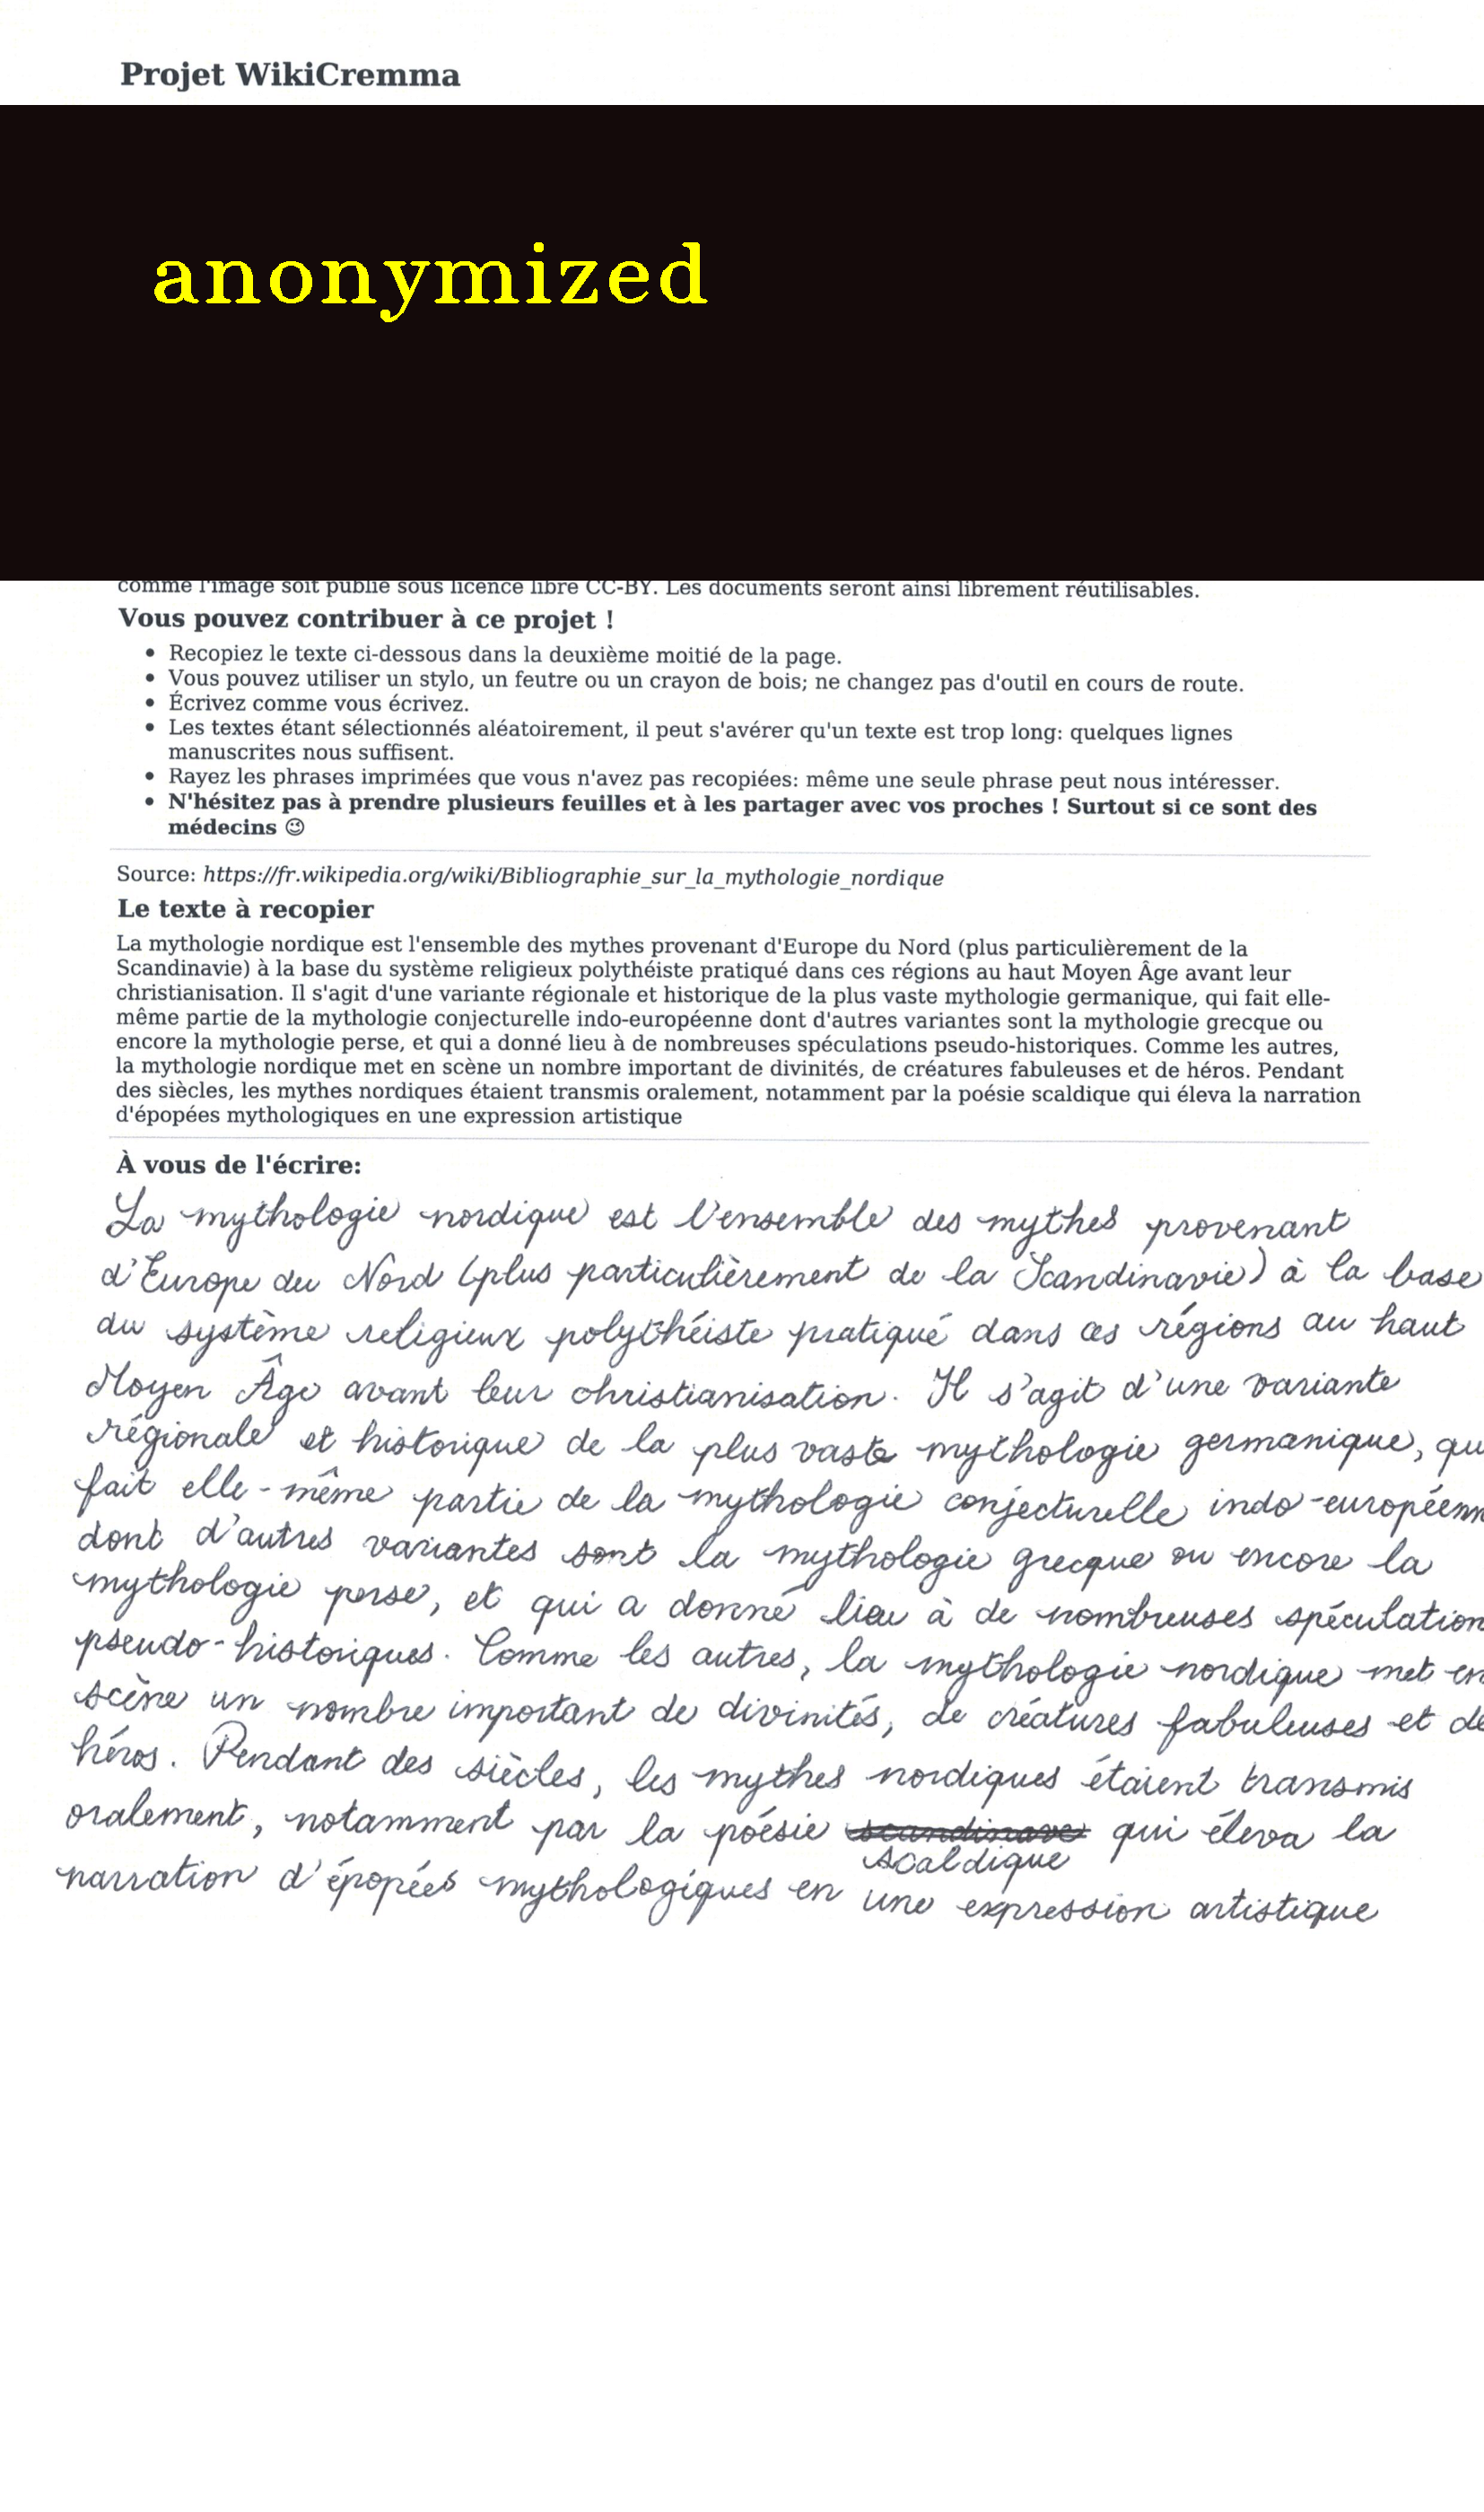 Projet WikiCremma
anonymized
comme l'image soit publié sous licence libre CC-BY. Les documents seront ainsi librement réutilisables.
Vous pouvez contribuer à ce projet !
• Recopiez le texte ci-dessous dans la deuxième moitié de la page.
• Vous pouvez utiliser un stylo, un feutre ou un crayon de bois; ne changez pas d'outil en cours de route.
• Écrivez comme vous écrivez.
• Les textes étant sélectionnés aléatoirement, il peut s'avérer qu'un texte est trop long: quelques lignes
manuscrites nous suffisent.
• Rayez les phrases imprimées que vous n'avez pas recopiées: même une seule phrase peut nous intéresser.
• N'hésitez pas à prendre plusieurs feuilles et à les partager avec vos proches ! Surtout si ce sont des
médecins 😉
Source: https://fr.wikipedia.org/wiki/Bibliographie_sur_la_mythologie_nordique
Le texte à recopier
La mythologie nordique est l'ensemble des mythes provenant d'Europe du Nord (plus particulièrement de la
Scandinavie) à la base du système religieux polythéiste pratiqué dans ces régions au haut Moyen Âge avant leur
christianisation. Il s'agit d'une variante régionale et historique de la plus vaste mythologie germanique, qui fait elle-
même partie de la mythologie conjecturelle indo-européenne dont d'autres variantes sont la mythologie grecque ou
encore la mythologie perse, et qui a donné lieu à de nombreuses spéculations pseudo-historiques. Comme les autres,
la mythologie nordique met en scène un nombre important de divinités, de créatures fabuleuses et de héros. Pendant
des siècles, les mythes nordiques étaient transmis oralement, notamment par la poésie scaldique qui éleva la narration
d'épopées mythologiques en une expression artistique
À vous de l'écrire:
La mythologie nordique est l'ensemble des mythes provenant
d'Europe du Nord (plus particulièrement de la Scandinavie) à la base
du système religieux polythéiste pratiqué dans ces régions au haut
Moyen Âge avant leur christianisation. Il s'agit d'une variante
régionale et historique de la plus vaste mythologie germanique, qu
fait elle-même partie de la mythologie conjecturelle indo-européenn
dont d'autres variantes sont la mythologie grecque ou encore la
mythologie perse, et qui a donné lieu à de nombreuses spéculation
pseudo-historiques. Comme les autres, la mythologie nordique met en
scène un nombre important de divinités, de créatures fabuleuses et de
héros. Pendant des siècles, les mythes nordiques étaient transmis
oralement, notamment par la poésie scandinave qui éleva la
scaldique
narration d'épopées mythologiques en une expression artistique